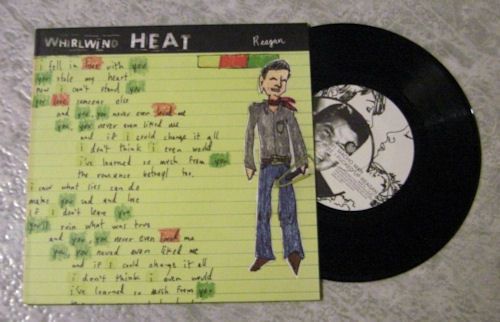 WHIRLWIND HEAT
Reegan
i fell in love with you
you stole my heart
now i can't stand you
you love someone else
and you, you never ever loved me
you, you never even liked me
and if i could change it all
i don't think i even would
i've learned so mesh from you
the romance betrayl too.
i know what lies can do
make you sad and love
if i don't leave you
you'll ruin what was true
and you, you never even loved me
you, you never even liked me
and if i could change it all
i don't think i even would
i've learned so mesh from you